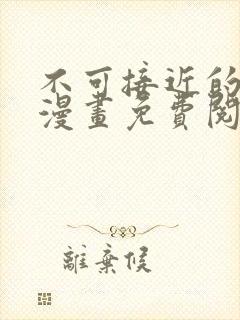 不可接近的
漫畫免費閱
離棄候